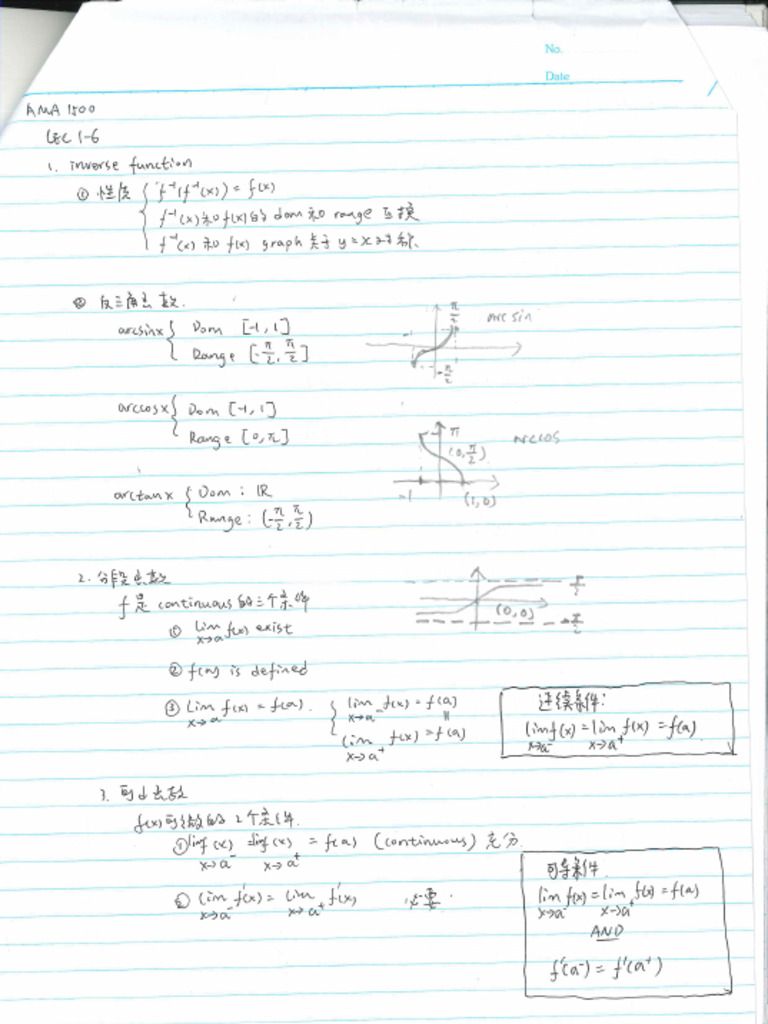 No.
Date
AMA 1500
LEC 1-6
1. inverse function
① 性质 { f⁻¹(f⁻¹(x)) = f(x)
f⁻¹(x)和f(x)的 dom 和 range 互换
f⁻¹(x) 和 f(x) graph 关于 y=x 对称.
② 反三角函数.
arcsinx { Dom [-1,1]
Range [-π/2, π/2]
π/2
arc sin
-1
-π/2
arccosx { Dom [-1,1]
Range [0,π]
π
arccos
(0, π/2)
-1
(1,0)
arctanx { Dom : IR
Range : (-π/2, π/2)
π/2
(0,0)
-π/2
2. 分段函数
f 是 continuous 的三个条件
① lim x→a f(x) exist
② f(a) is defined
③ Lim x→a f(x) = f(a). { lim x→a⁻ f(x) = f(a)
॥
lim x→a⁺ f(x) = f(a)
连续条件:
lim x→a⁻ f(x) = lim x→a⁺ f(x) = f(a)
3. 可d函数
f(x)可微的 2个条件.
① lim x→a⁻ f(x) = lim x→a⁺ f(x) = f(a) (continuous) 充分
② lim x→a⁻ f'(x) = Lim x→a⁺ f'(x) 必要.
可导条件
lim x→a⁻ f(x) = lim x→a⁺ f(x) = f(a)
AND
f'(a⁻) = f'(a⁺)